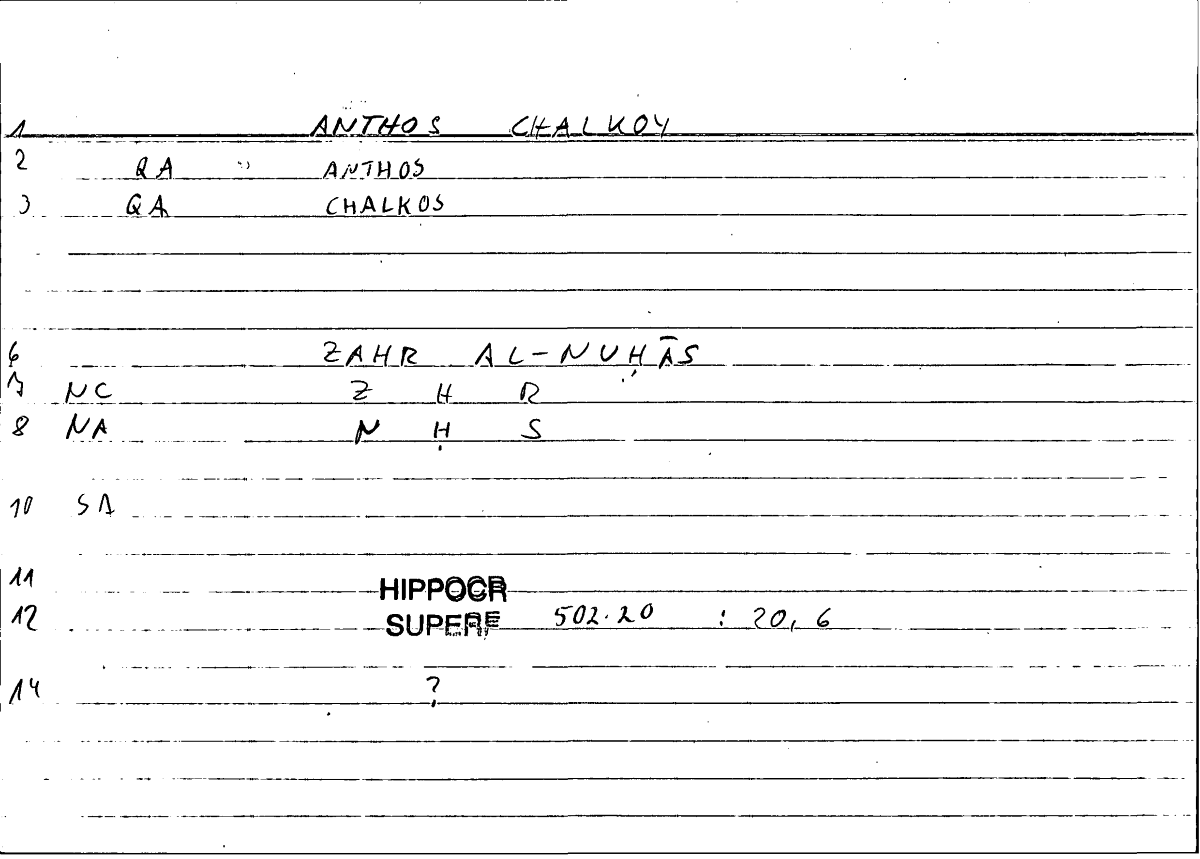 1 ANTHOS CHALKOY
2 QA ANTHOS
3 QA CHALKOS
6 ZAHR AL-NUḤĀS
7 NC Z H R
8 NA N Ḥ S
10 SA
11 HIPPOCR
12 SUPERF 502.20 : 20,6
14 ?